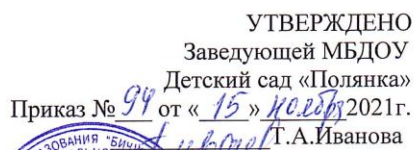 УТВЕРЖДЕНО
Заведующей МБДОУ
Детский сад «Полянка»
Приказ № 94 от « 15 » ноября 2021г.
Т.А.Иванова